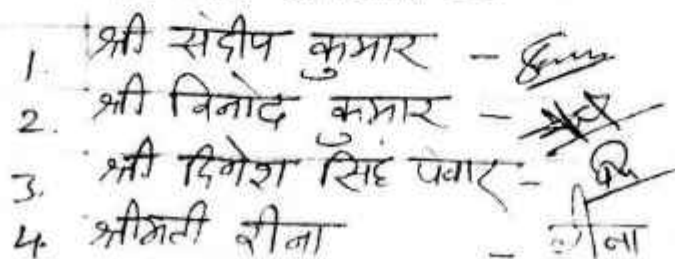 1. श्री संदीप कुमार -
2. श्री विनोद कुमार -
3. श्री दिनेश सिंह पंवार -
4. श्रीमती रीना - रीना